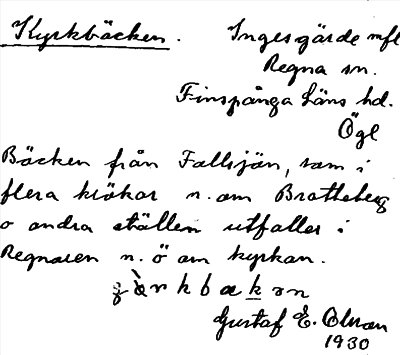 Kyrkbäcken. Ingesgärde mfl
Regna sn.
Finspånga Läns hd.
Ögl
Bäcken från Fallsjön, som i
flera krökar n. om Brotteberg
o andra ställen utfaller i
Regnaren n. ö om kyrkan.
Gustaf E. Olsson
1930